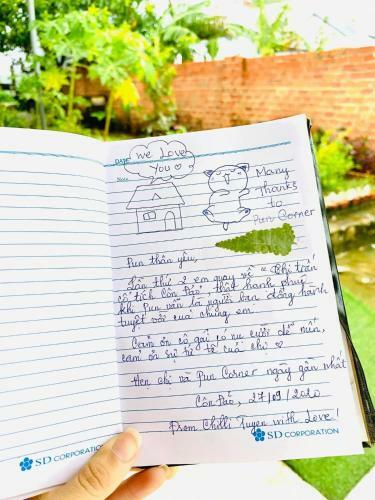 DATE
we Love
You
Many
Thanks
to
Pun Corner
Pun thân yêu,
Lần thứ 2 em quay về "Thị trấn
cổ tích Côn Đảo" thật hạnh phúc
khi Pun vẫn là người bạn đồng hành
tuyệt vời của chúng em.
Cảm ơn cô gái có nụ cười dễ mến,
cảm ơn sự tử tế của chị
Hẹn chị và Pun Corner ngày gần nhất
Côn Đảo, 27/09/2020
From Chilli Tuyen with Love!
SD CORPORATION
SD CORPORATION